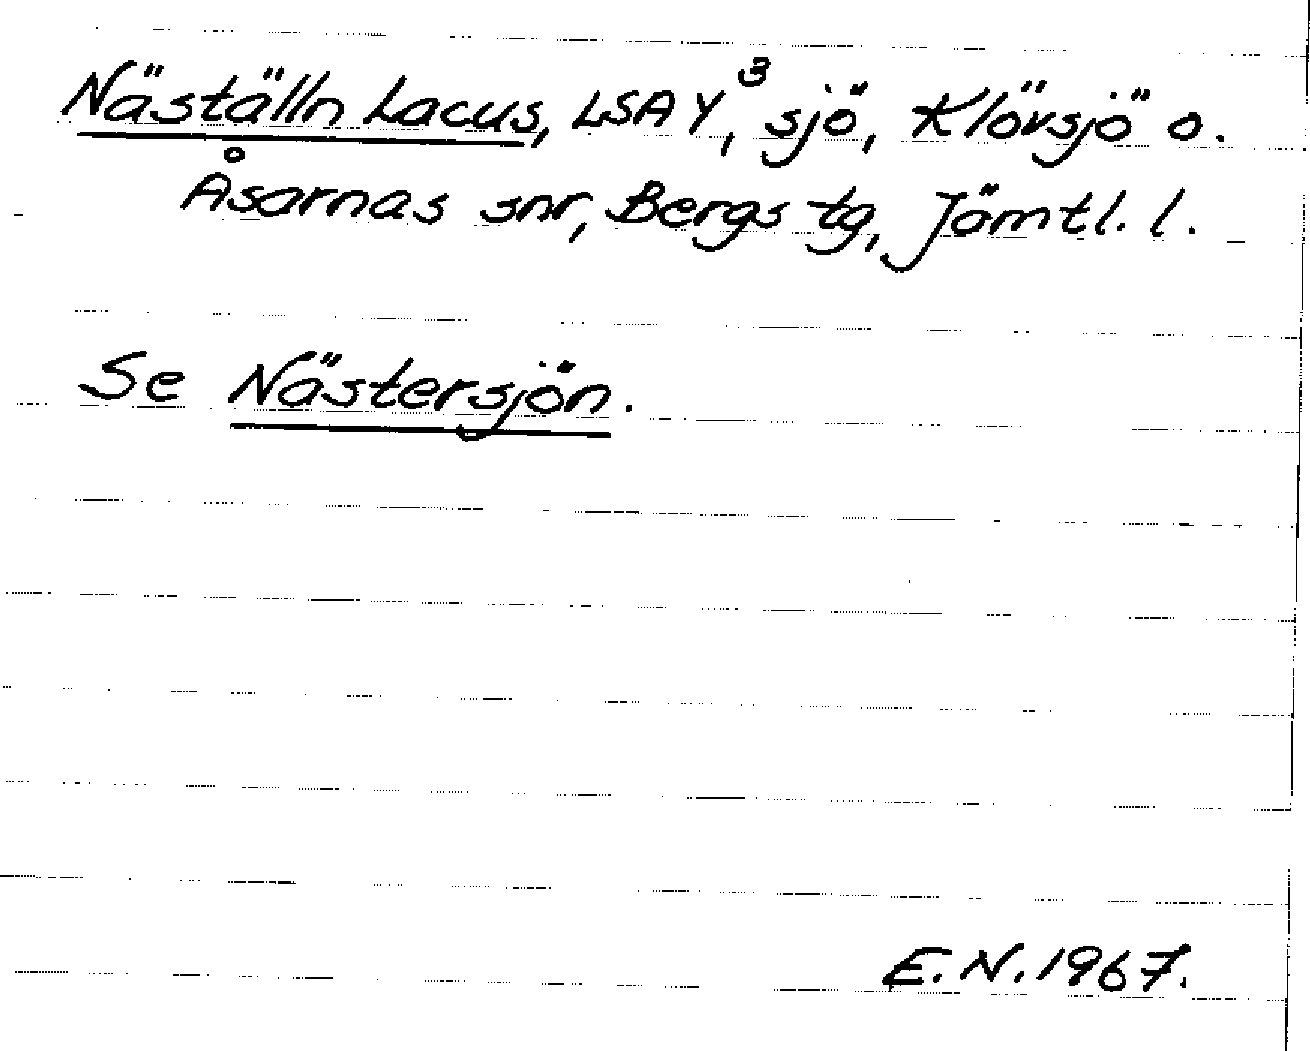 Näställn Lacus, LSA Y³, sjö, Klövsjö o.
Åsarnas snr, Bergs tg, Jämtl. l.
Se Nästersjön.
E.N.1967.